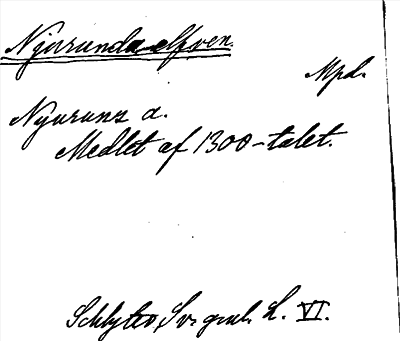 Njurundaelfven.
Mpd.
Nyurunz a.
Medlet af 1300-talet.
Schlyter, Sv. gml. L. VI.